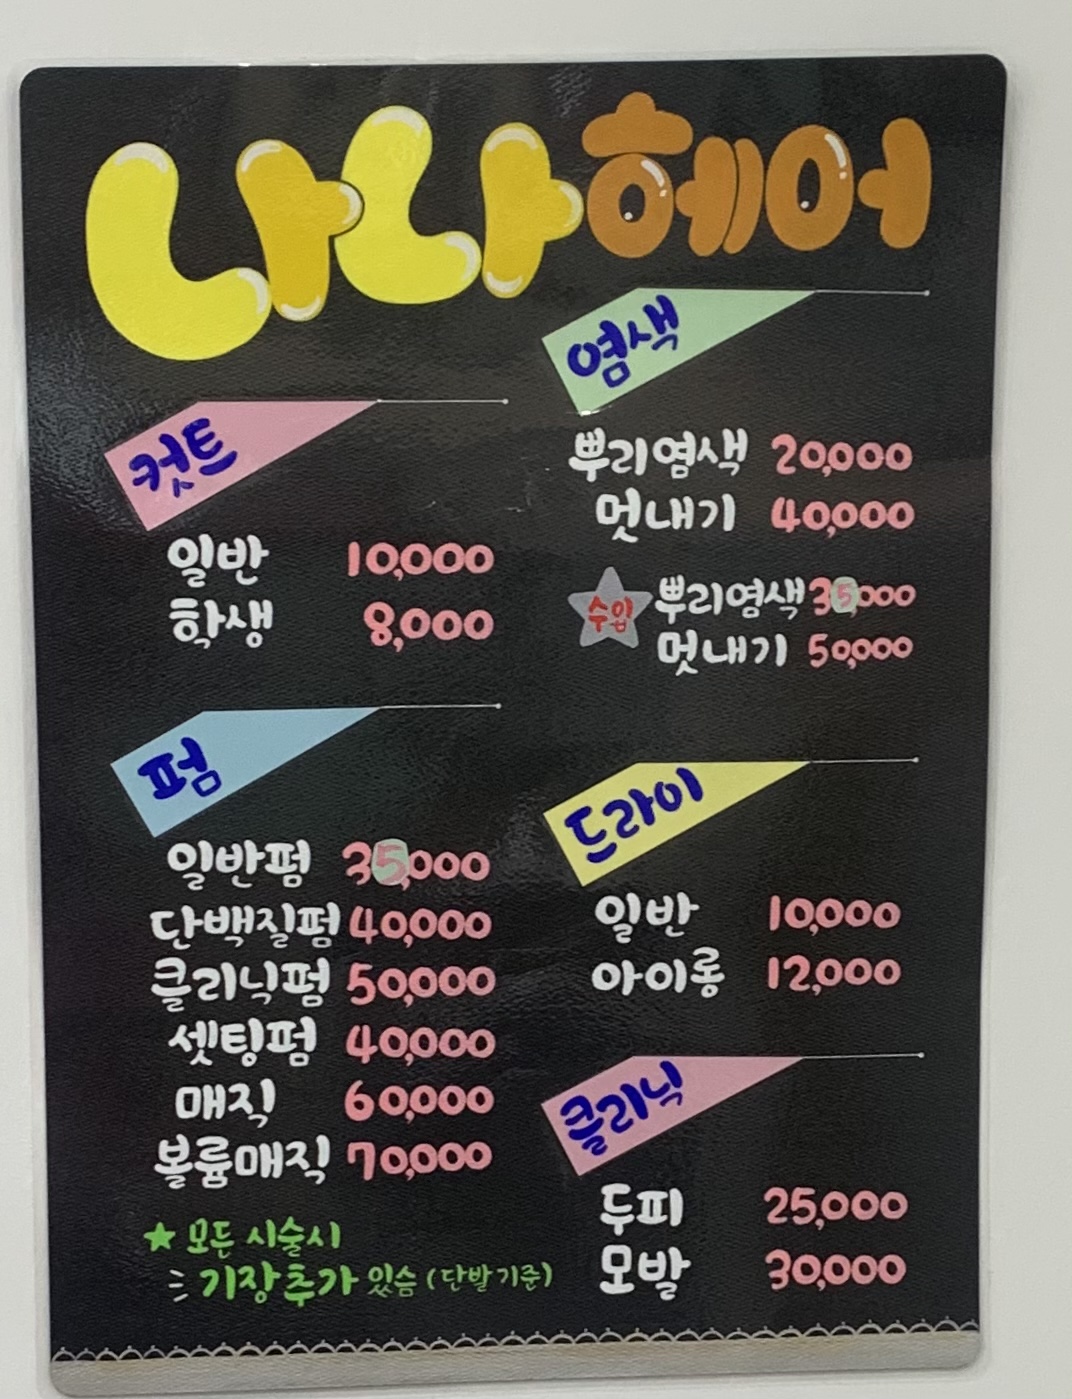 나나헤어
컷트
일반 10,000
학생 8,000
펌
일반펌 35,000
단백질펌 40,000
클리닉펌 50,000
셋팅펌 40,000
매직 60,000
볼륨매직 70,000
★ 모든 시술시
기장추가 있슴 (단발기준)
염색
뿌리염색 20,000
멋내기 40,000
수입
뿌리염색 35,000
멋내기 50,000
드라이
일반 10,000
아이롱 12,000
클리닉
두피 25,000
모발 30,000